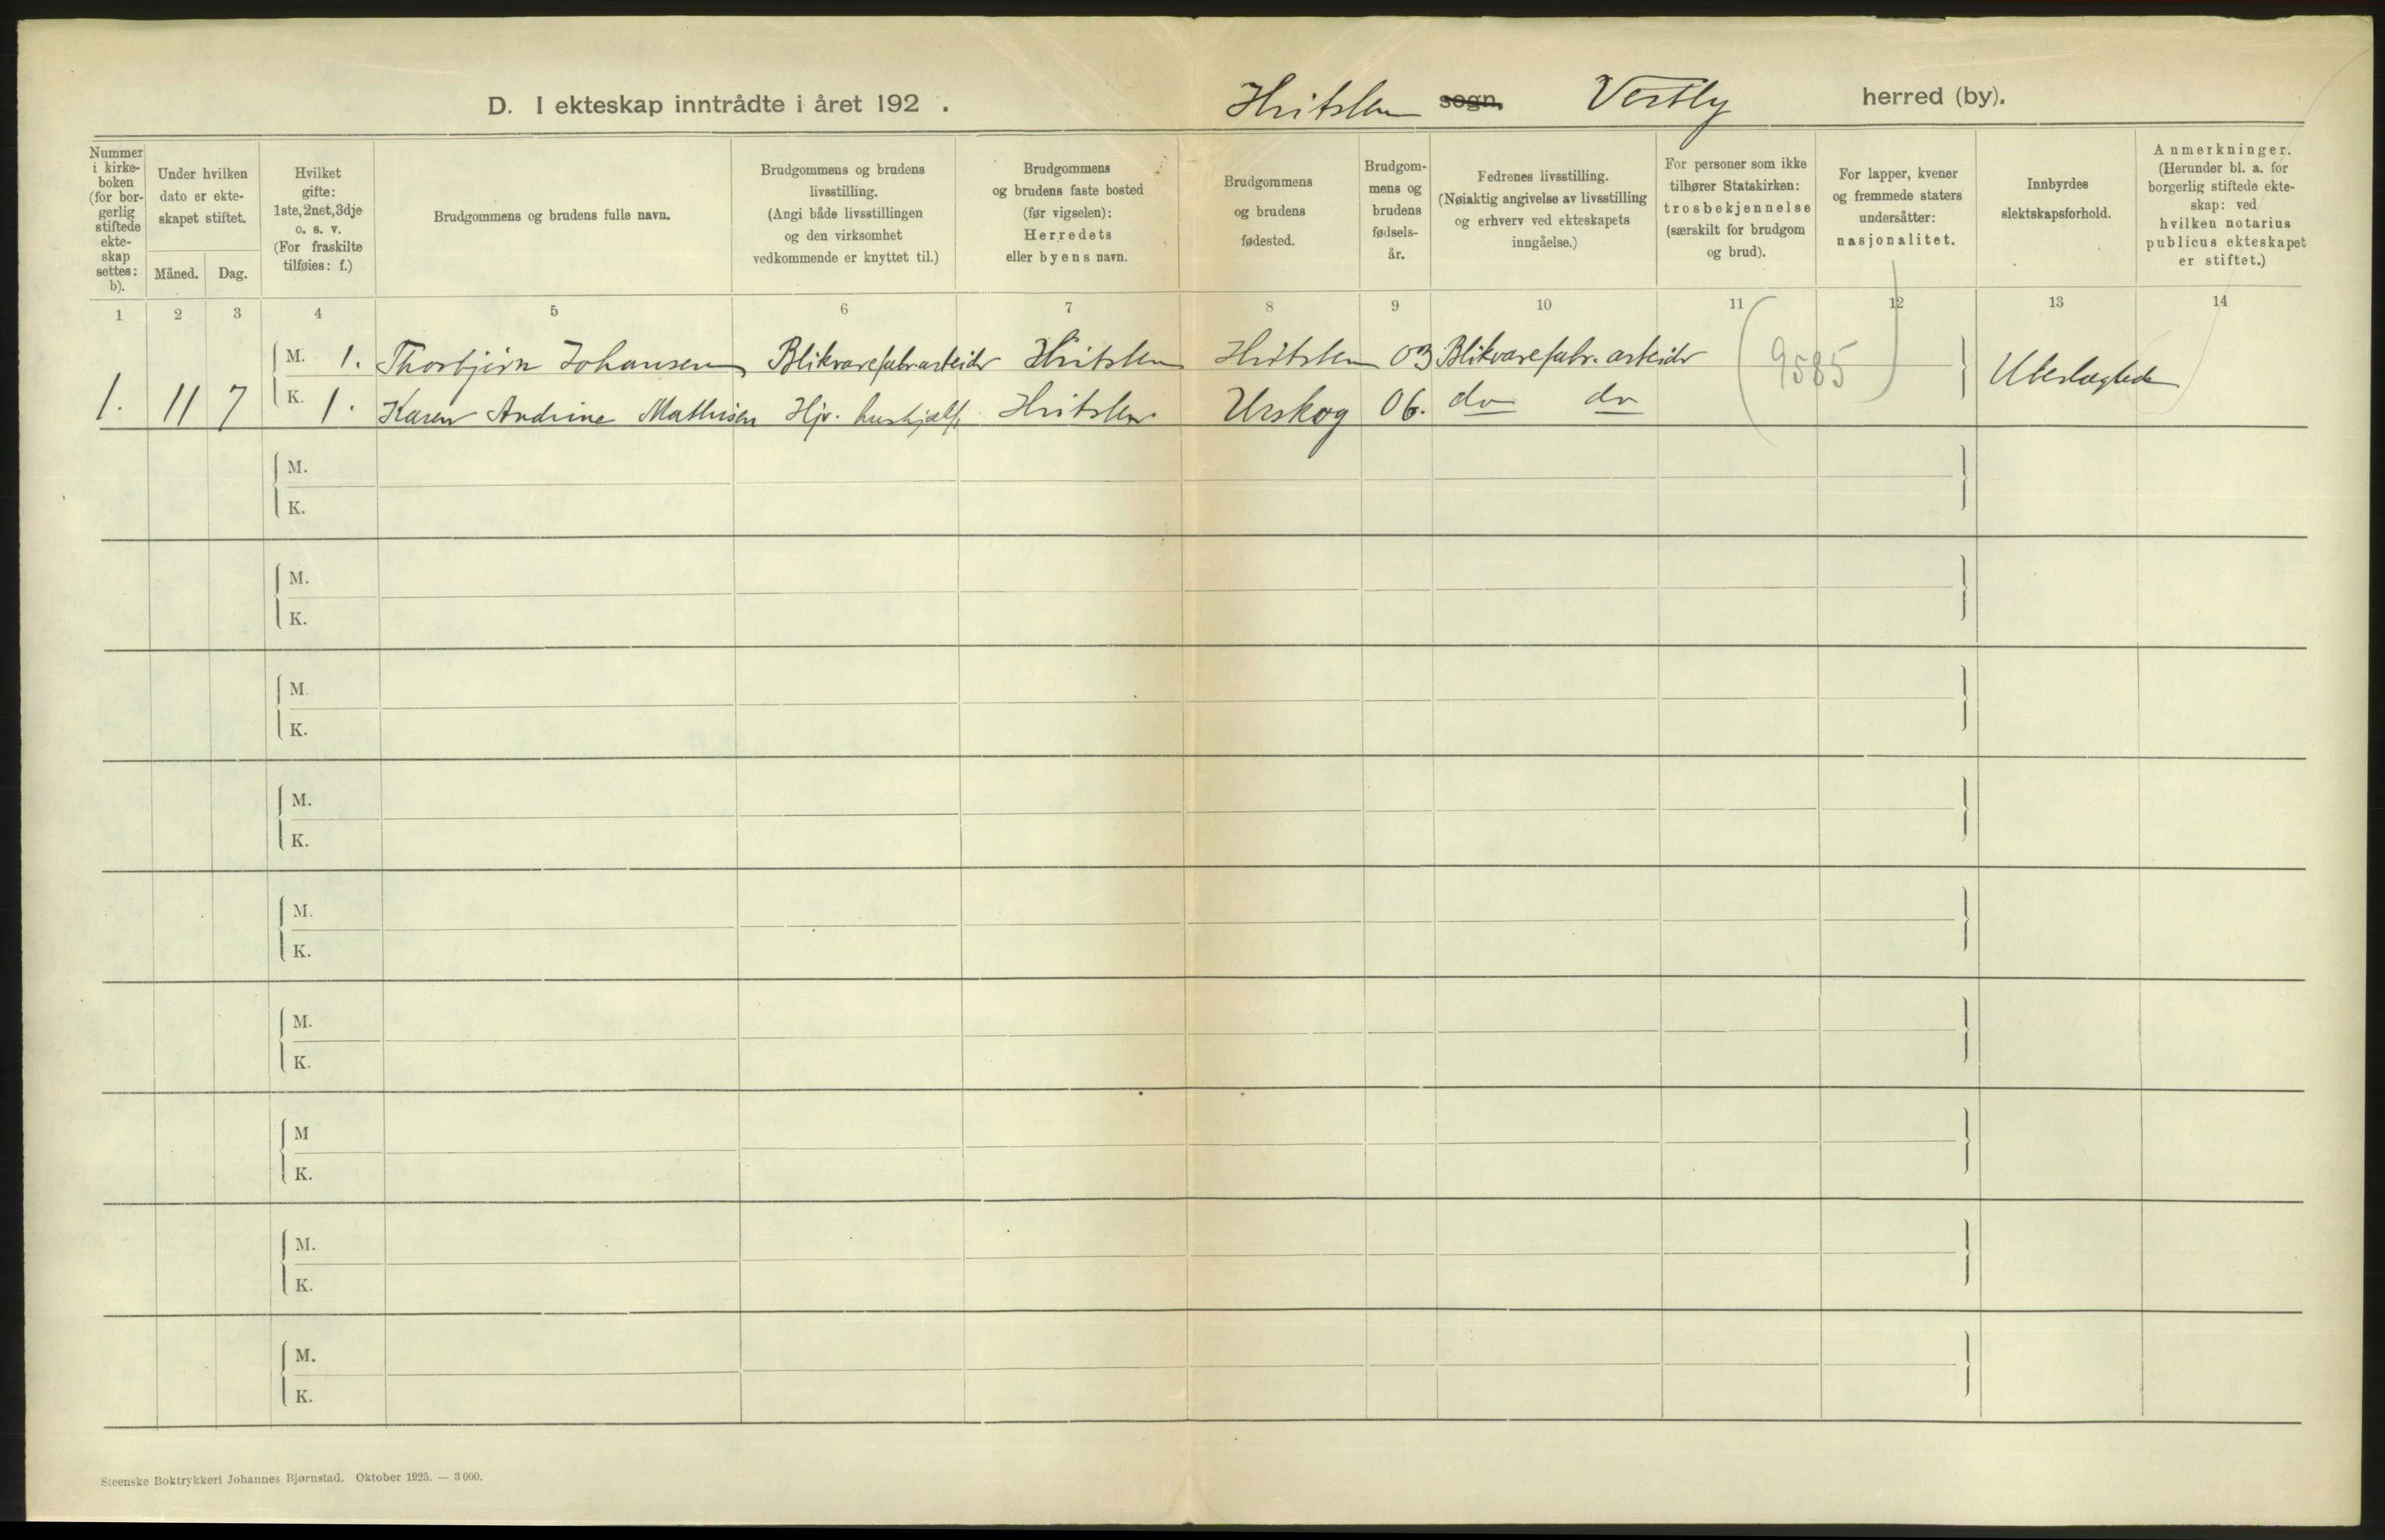 D. I ekteskap inntrådte i året 192 .
Hvitsten sogn. Vestby herred (by).
Nummer i kirke-boken (for bor-gerlig stiftede ekte-skap settes: b).
Under hvilken dato er ekte-skapet stiftet.
Måned. Dag.
Hvilket gifte: 1ste, 2net, 3dje o. s. v. (For fraskilte tilføies: f.)
Brudgommens og brudens fulle navn.
Brudgommens og brudens livsstilling. (Angi både livsstillingen og den virksomhet vedkommende er knyttet til.)
Brudgommens og brudens faste bosted (før vigselen): Herredets eller byens navn.
Brudgommens og brudens fødested.
Brudgom-mens og brudens fødsels-år.
Fedrenes livsstilling. (Nøiaktig angivelse av livsstilling og erhverv ved ekteskapets inngåelse.)
For personer som ikke tilhører Statskirken: trosbekjennelse (særskilt for brudgom og brud).
For lapper, kvener og fremmede staters undersåtter: nasjonalitet.
Innbyrdes slektskapsforhold.
Anmerkninger. (Herunder bl. a. for borgerlig stiftede ekte-skap: ved hvilken notarius publicus ekteskapet er stiftet.)
1 2 3 4 5 6 7 8 9 10 11 12 13 14
M. 1. Thorbjørn Johansen Blikvarefabrarbeider Hvitsten Hvitsten 03 Blikvarefabr. arbeider (9585) Ubeslegtede
1. 11 7 K. 1. Karen Andrine Mathisen Hjv. hushjælp Hvitsten Urskog 06. do do
M.
K.
M.
K.
M.
K.
M.
K.
M.
K.
M.
K.
M
K.
M.
K.
M.
K.
Steenske Boktrykkeri Johannes Bjørnstad. Oktober 1925. — 3 000.